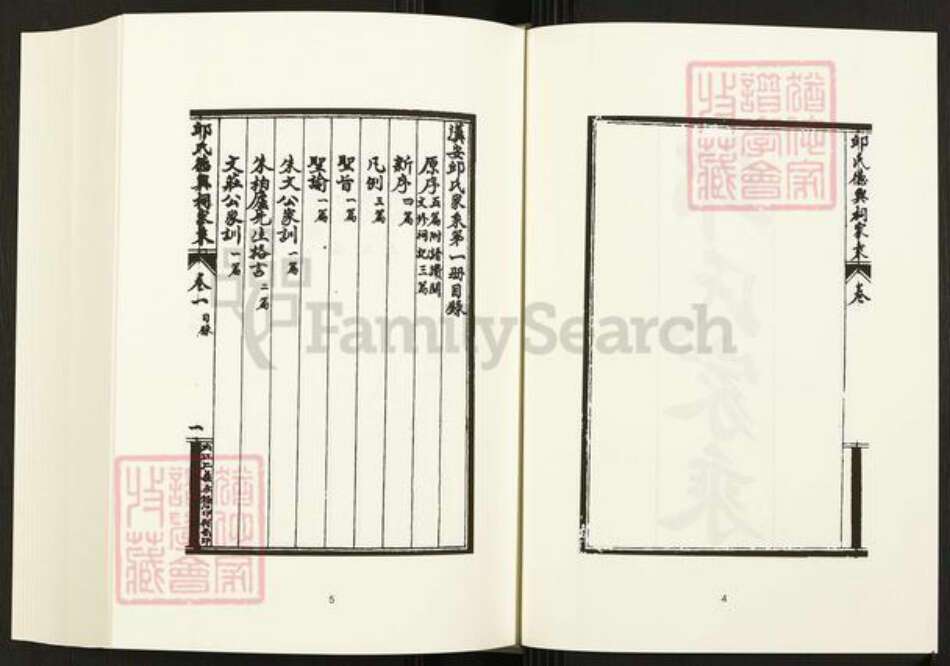 邱氏德興祠家乘
卷
4
漢安邱氏家乘第一册目錄
原序五篇附諸讚聞
文外祠記三篇
新序四篇
凡例三篇
聖旨一篇
聖諭一篇
朱文公家訓一篇
朱柏廬先生格言二篇
文莊公家訓一篇
邱氏德興祠家乘
卷一目錄
一
5
FamilySearch
家譜學會收藏